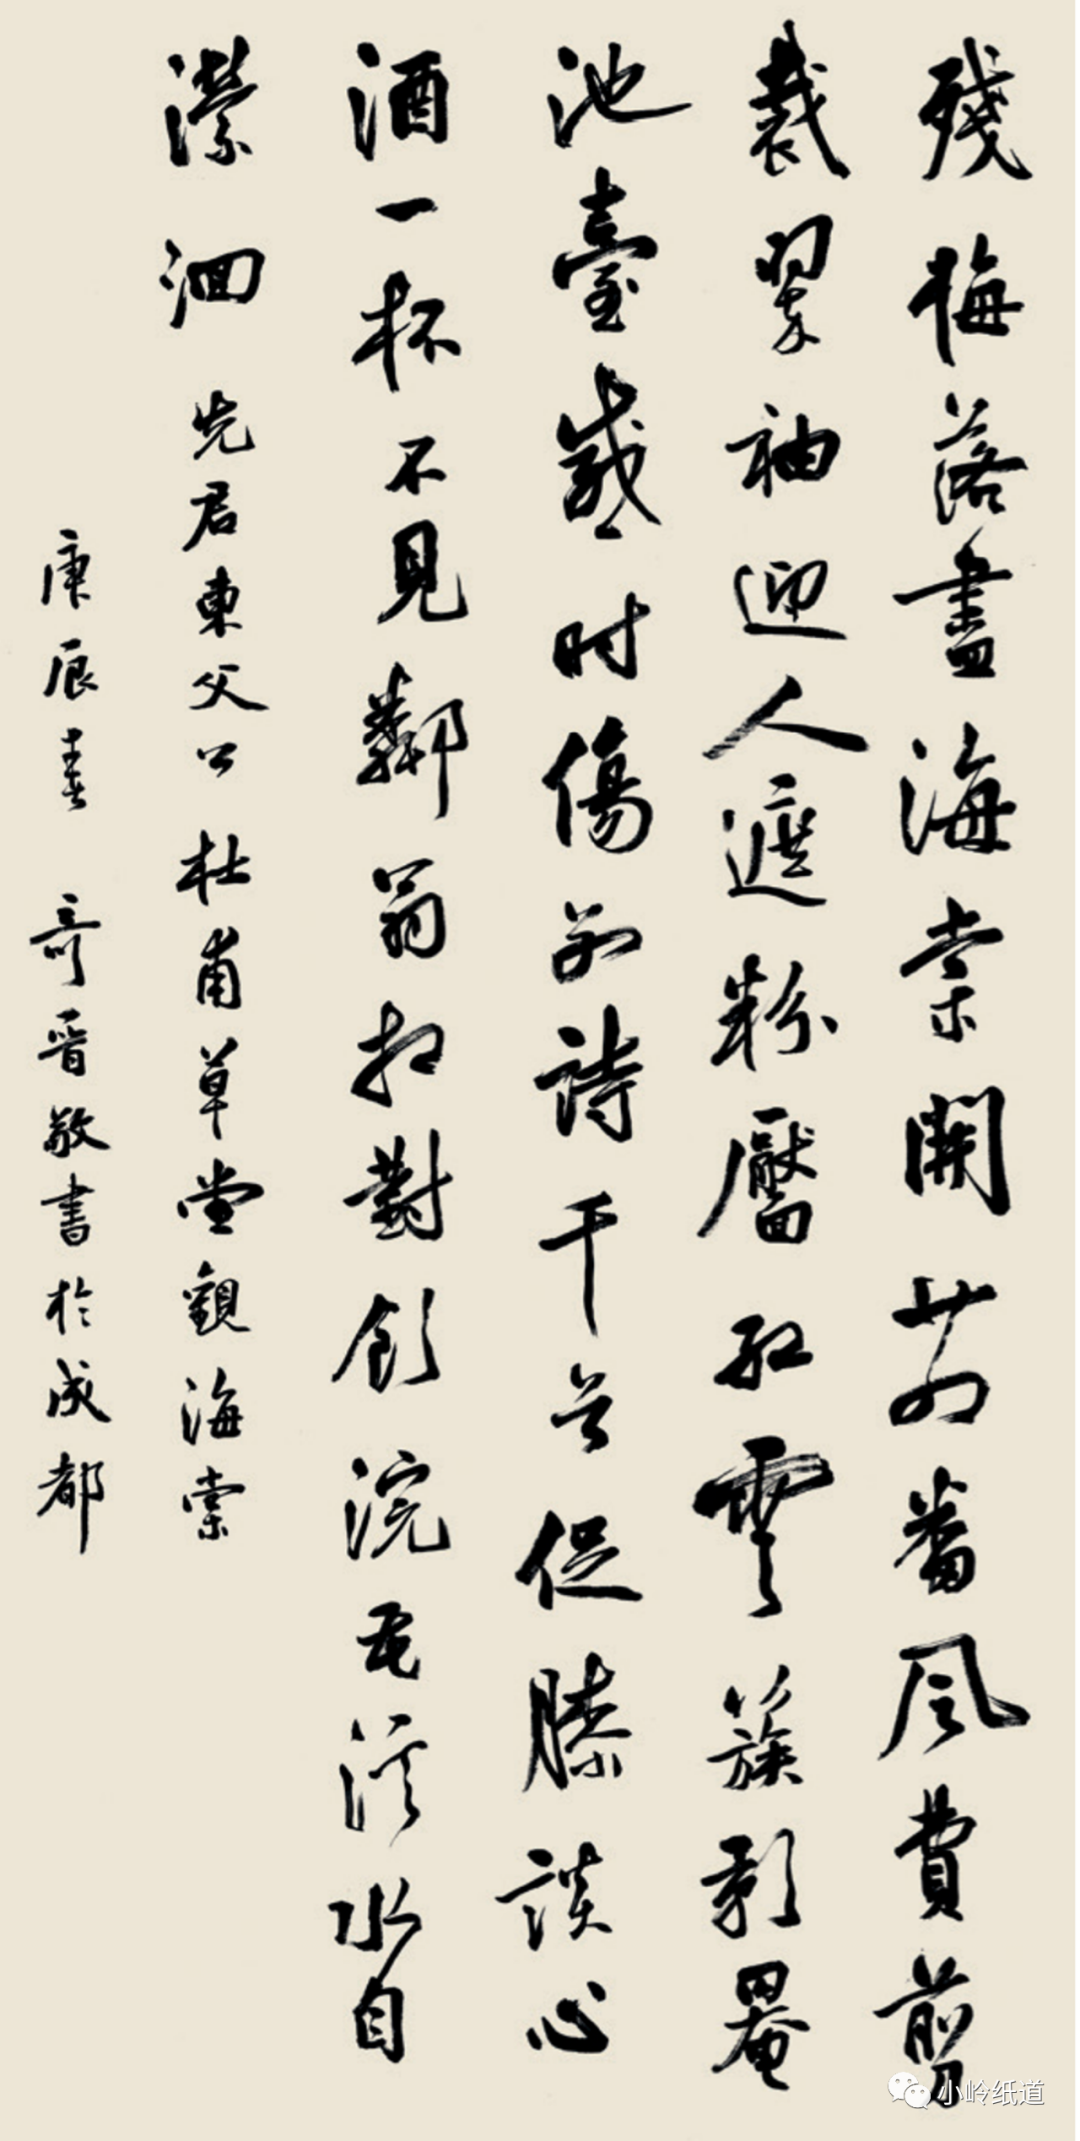 殘梅落盡海棠開廿四番風費剪
裁翠袖迎人遮粉靨紅雲簇影罨
池臺感時傷別詩千首促膝談心
酒一杯不見鄰翁相對飲浣花溪水自
瀠洄 先君東父公杜甫草堂觀海棠
庚辰春 奇晋敬書於成都
小岭纸道